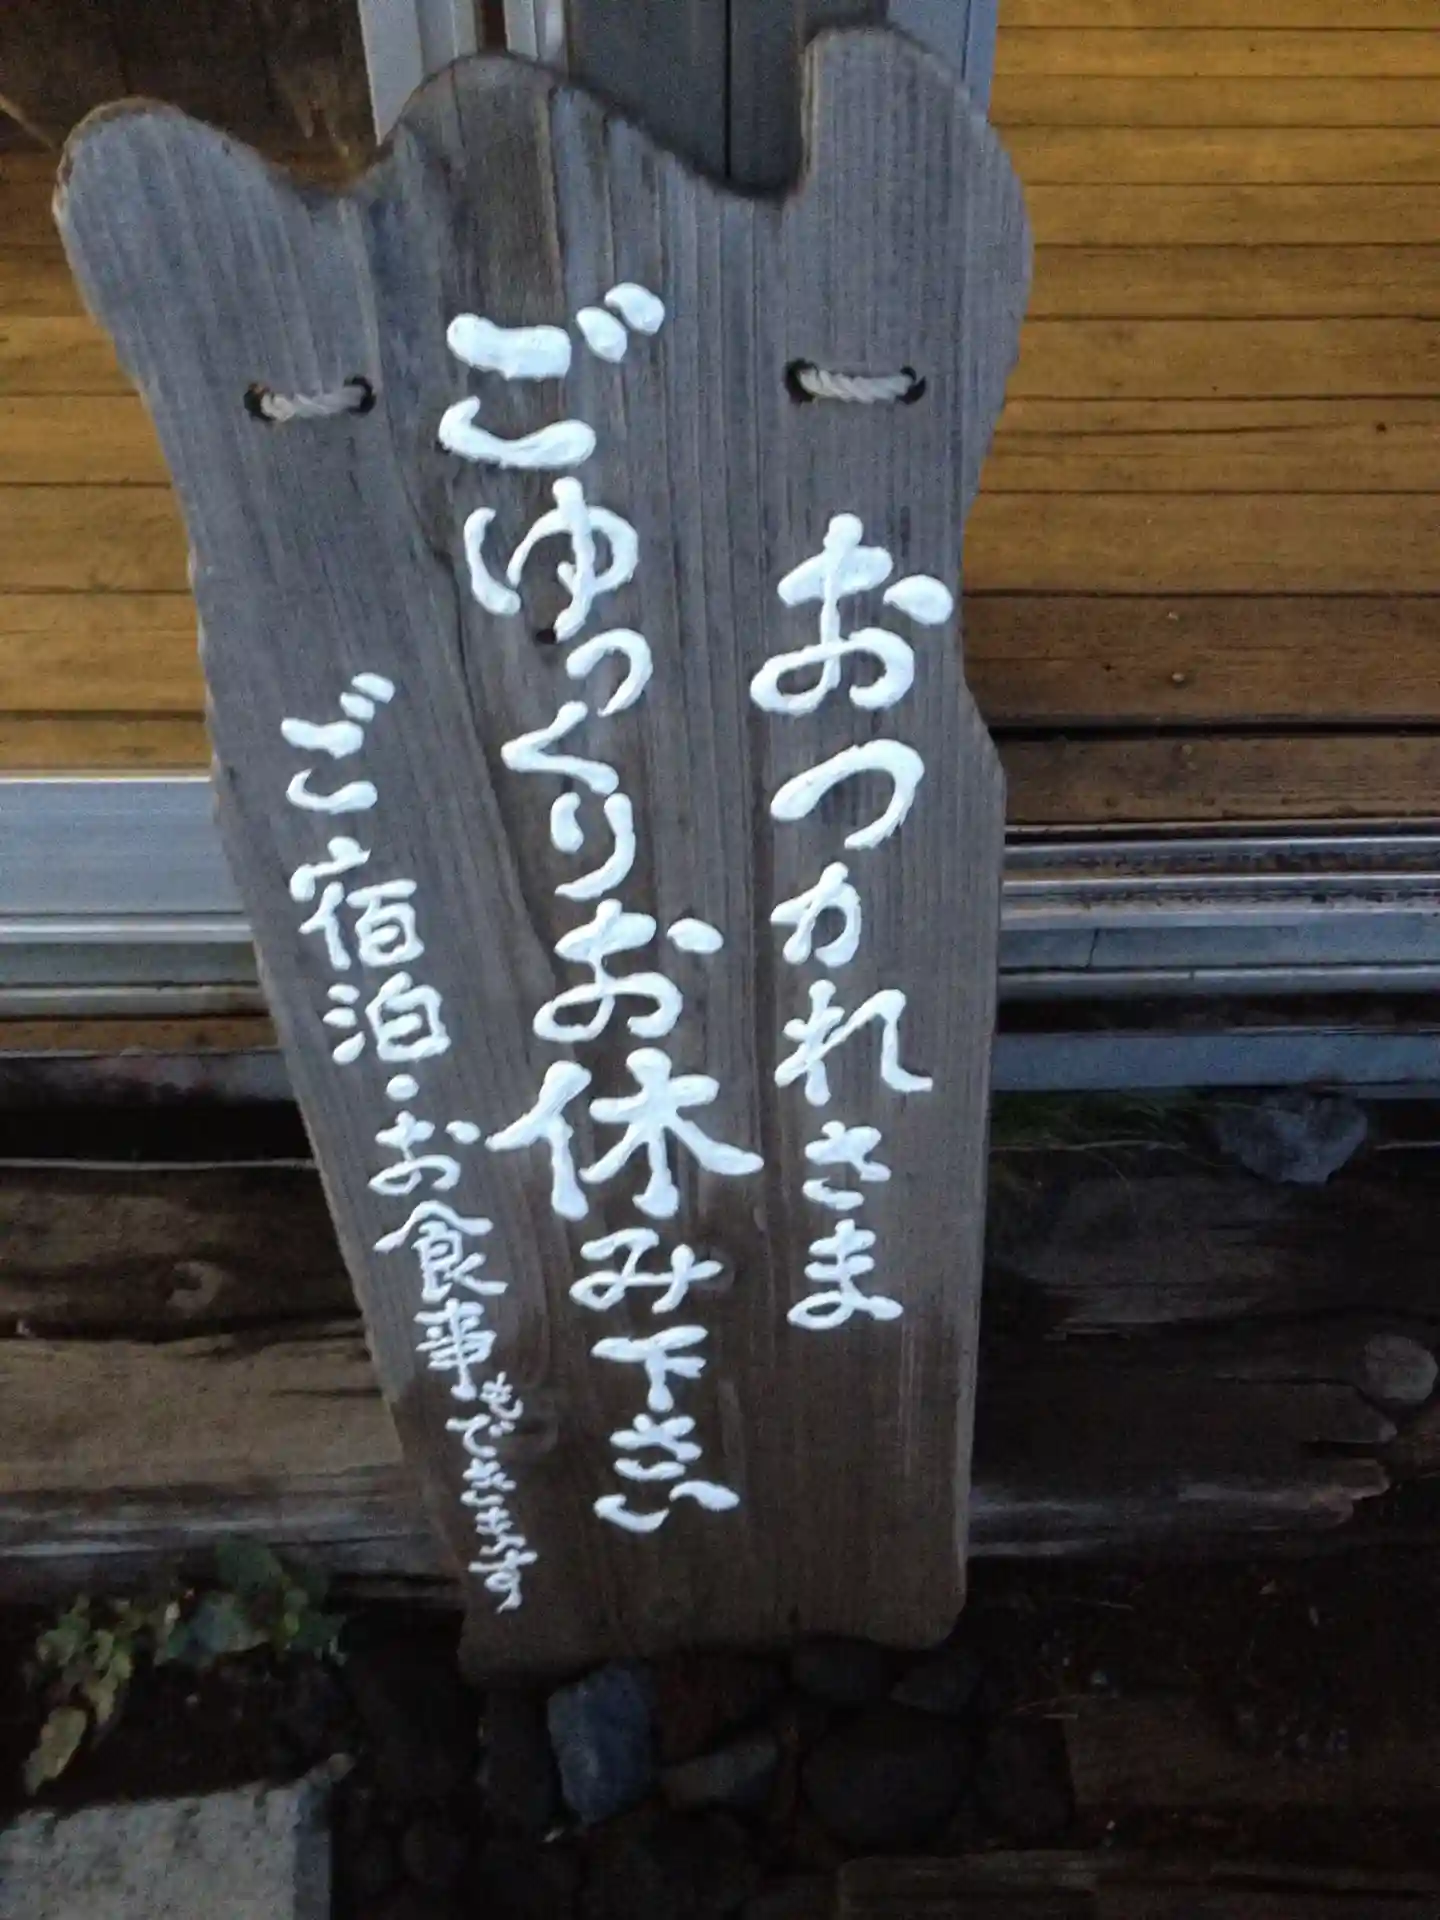 おつかれさま
ごゆっくりお休み下さい
ご宿泊・お食事もできます